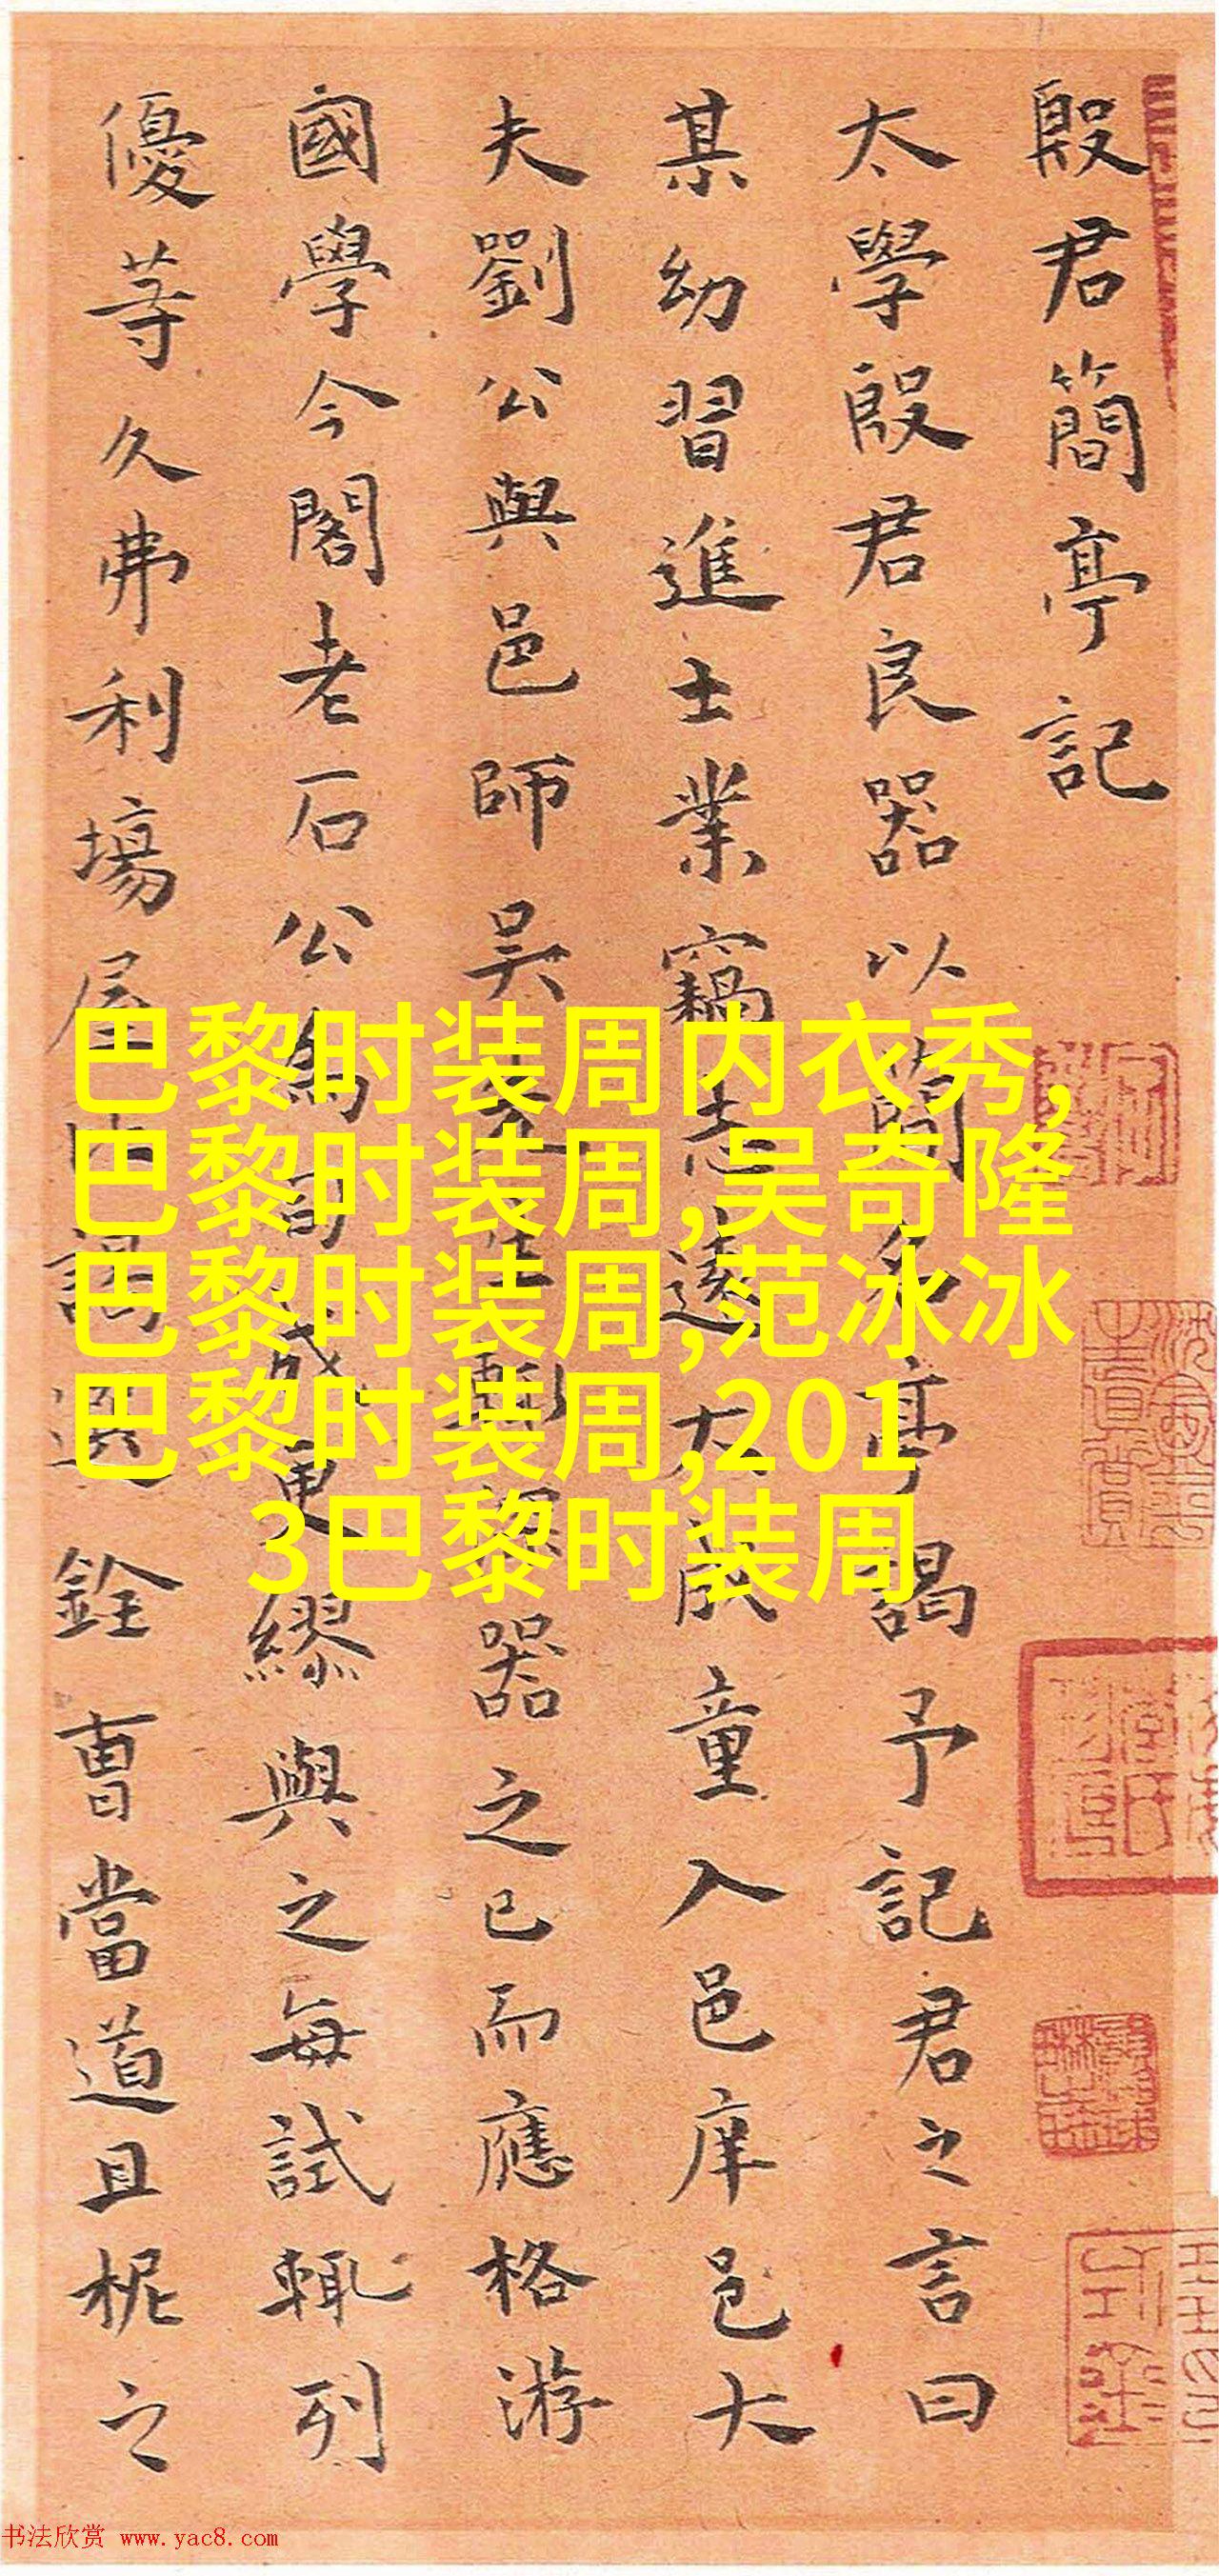 殷君簡亭記
太學殷君良器以簡名亭謁予記君之言曰
某幼習進士業竊志遠大成童入邑庠邑大
夫劉公與邑師吳先生甄器之已而應格游
國學今閣老石公為司成更繆與之每試輒列
優等久弗利場屋比謁選銓曹當道且柅之
巴黎时装周内衣秀,
巴黎时装周,吴奇隆
巴黎时装周,范冰冰
巴黎时装周,201
3巴黎时装周
书法欣赏 www.yac8.com